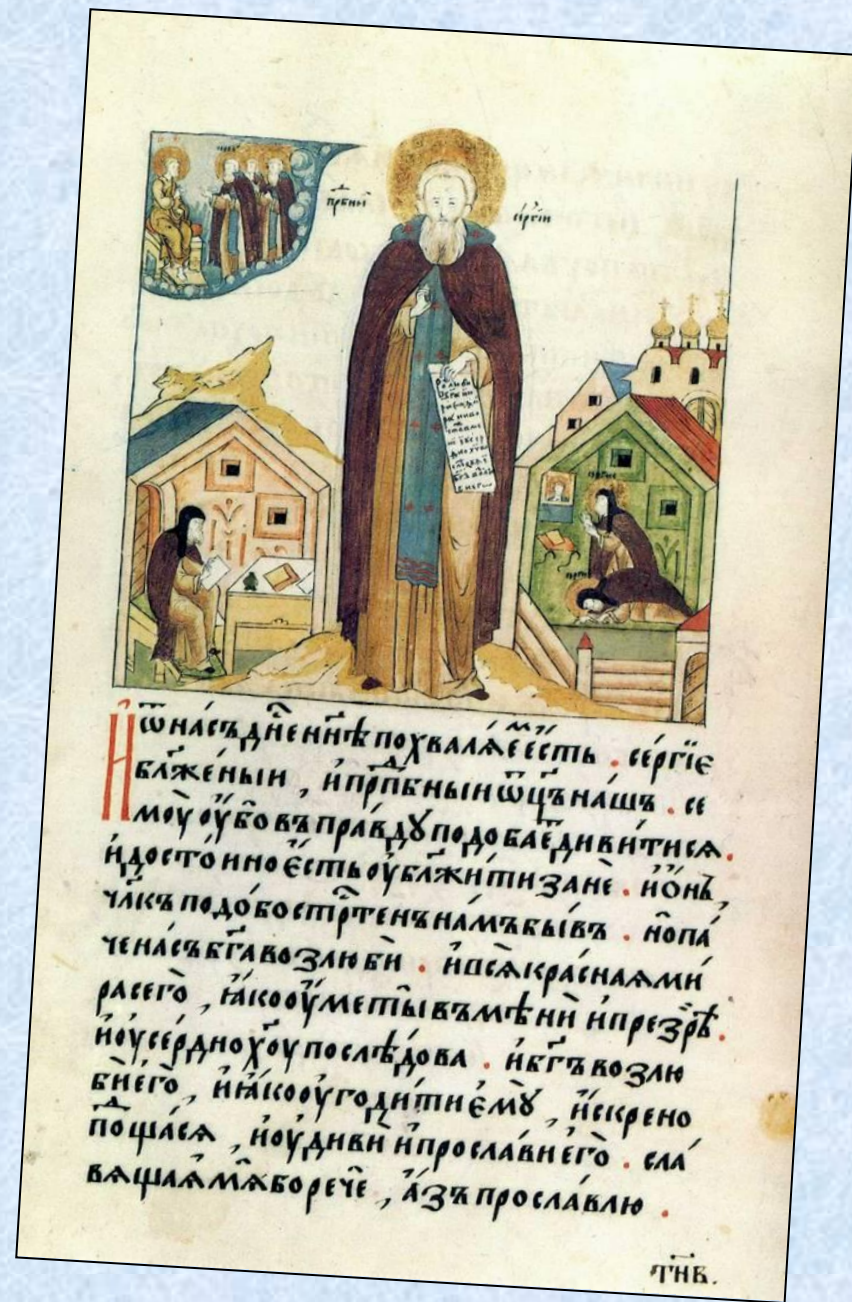 прⷣбныи
сергїи
И ѿ на́съ дн҃е нн҃ѣ похвалѧ́еⷨ е҆́сть . се́ргїе
блж҃е́ныи , и҆ прпⷣбныи ѿц҃ъ на́шъ . се
моу̀ оу҆́бо въ пра́вдꙋ подоба́еⷮ диви́тисѧ .
и҆ досто́ино є҆́сть оу҆блж҃и́ти занѐ . и҆ о҆́нъ ,
чл҃къ подо́бострⷭ҇тенъ на́мъ бы́въ . но̀ па́
че на́съ бг҃а возлюбѝ . и҆ всѧ̀ кра́снаѧ ми́
ра сего̀ , ꙗ҆́ко оу҆ме́ты въмѣнѝ и҆ презрѣ̀ .
и҆ оу҆се́рдно хⷭ҇оу послѣ́дова . и҆ бг҃ъ возлю
бѝ его̀ , и҆ ꙗ҆́ко оу҆годи́ти є҆мꙋ̀ , и҆́скрено
поⷣща́сѧ , и҆ оу҆дивѝ и҆ просла́ви его̀ . сла́
вѧщаѧ мѧ̀ бо речѐ , а҆́зъ просла́влю .
тн҃в.